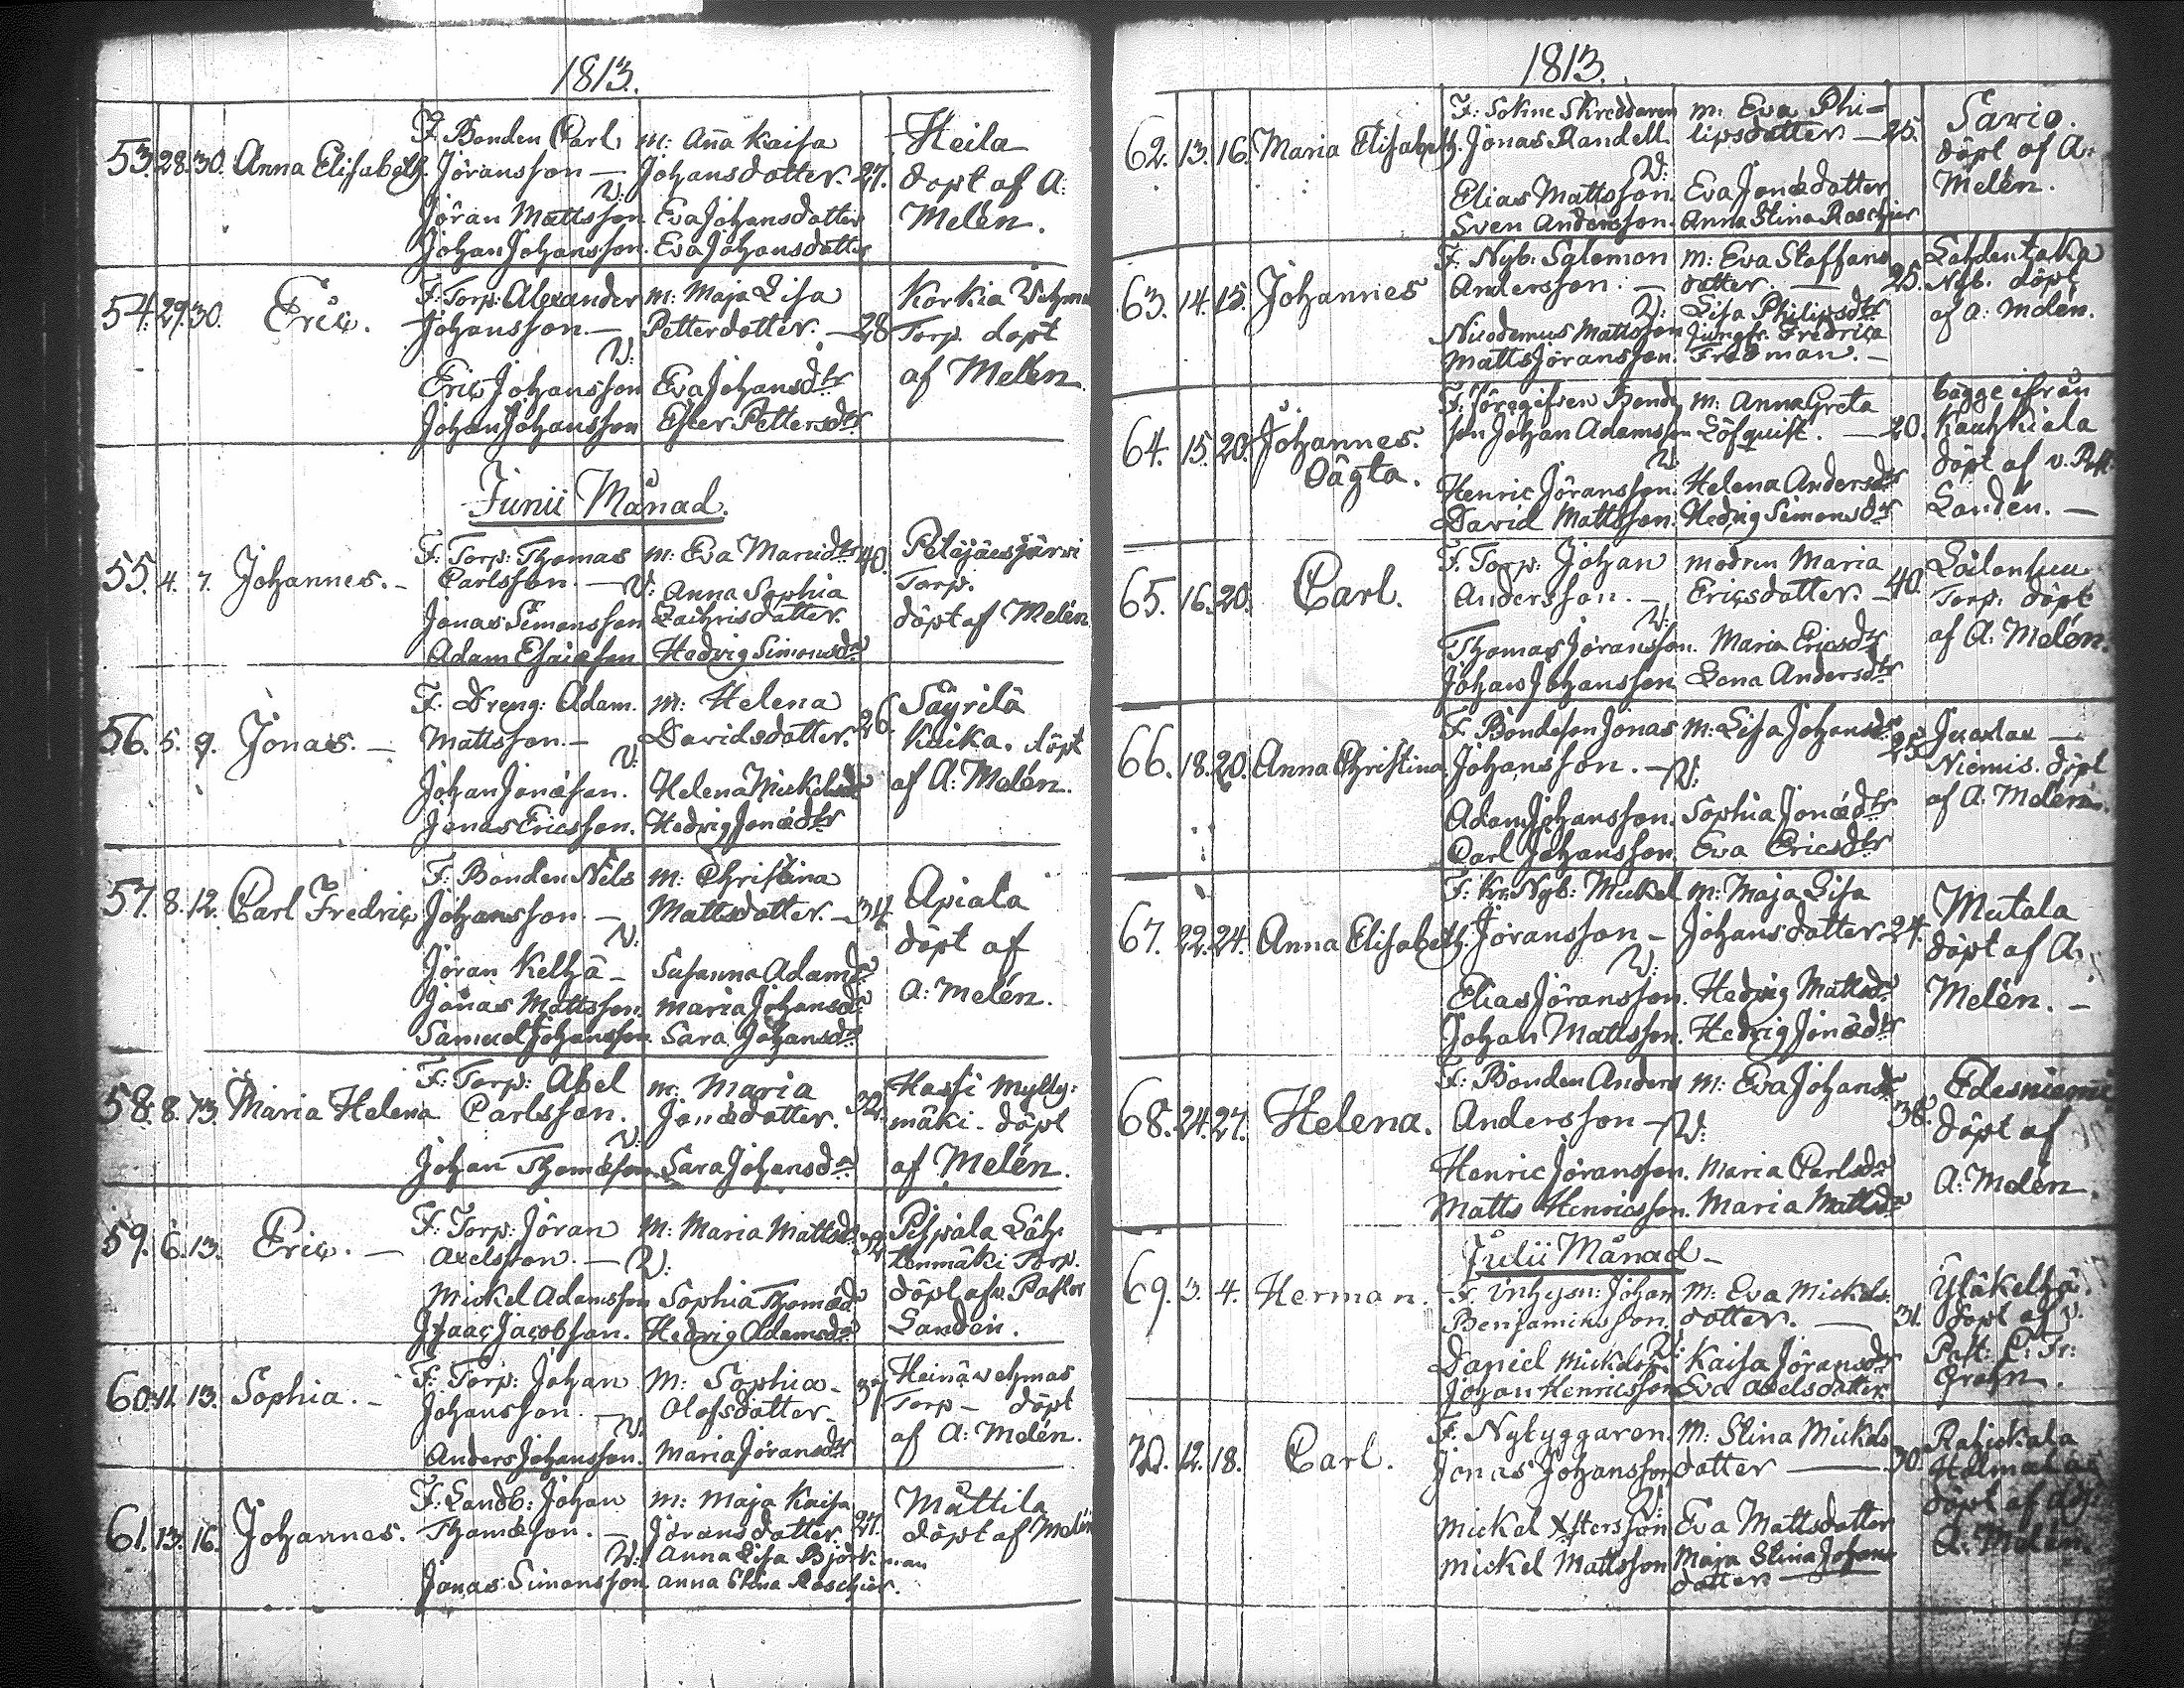 1813.
53. 28. 30. Anna Elisabeth. F: Bonden Carl m: Aña Kaisa Heila
Jöransson — Johansdotter. 27. döpt af A:
V: Melén.
Jöran Mattsson Eva Johansdotter
Johan Johansson. Eva Johansdotter
54. 29. 30. Eric. F: Torp: Alexander m: Maja Lisa Korkia
Johansson. — Petterdotter. — 28 Torp. döpt
V: af Melén
Eric Johansson Eva Johansdtr
Johan Johansson Ester Pettersdtr
Junii Månad.
55. 4. 7. Johannes. — F: Torp: Thomas m: Eva 40. Petäjäesjärvi
Carlsson. — V: Anna Sophia Torp.
Jonas Simonsson Zachrisdotter. döpt af Melén
Adam Esaiæson Hedvig Simonsdr
56. 5. 9. Jonas. — F: Dreng: Adam. m: Helena 26. Säyrilä
Mattsson. — Davidsdotter. Kaika. döpt
V: af A: Melén.
Johan Jonæson. Helena Mickelsdr
Jonas Ericsson. Hedvig Jonædtr
57. 8. 12. Carl Fredric F: Bonden Nils m: Christina Apiala
Johansson. — Mattsdotter. — 34. döpt af
V: A: Melén.
Jöran Kelhä — Susanna Adamsdr
Jonas Mattsson. Maria Johansdr
Samuel Johansson. Sara Johansdr
58. 8. 13. Maria Helena F: Torp: Abel m: Maria 32. Hassi Mylly:
Carlsson. Jonædotter. mäki. döpt
V: af Melén.
Johan Thomæson. Sara Johansdr
59. 6. 13. Eric. — F: Torp: Jöran M: Maria Mattsdr 32 Pihpala Läh:
Axelsson. — V: tenmäki Torp.
Mickel Adamsson Sophia Thomædr döpt af v. Pastor
Isaac Jacobson. Hedvig Adamsdr Landén.
60. 11. 13. Sophia. — F: Torp: Johan M: Sophia — 37 Heinävehmas
Johansson. — Olofsdotter — Torp — döpt
V: af A: Melén.
Anders Johansson. Maria Jöransdtr
61. 13. 16. Johannes. F: Landb: Johan M: Maja Kaisa Mättila
Thomæson. — Jöransdotter. 27. döpt af Melén
V: Anna Lisa Björkman
Jonas Simonsson. Anna Stina Roschier.
1813.
62. 13. 16. Maria Elisabeth. F: Sokne Skreddaren m: Eva Phi= Sario.
Jonas Randell lipsdotter — 25. döpt af A:
V: Melén.
Elias Mattsson. Eva Jonædotter
Sven Andersson. Anna Stina Roschier
63. 14. 15. Johannes F: Nyb: Salomon m: Eva Staffans Lahdentaka
Andersson. — dotter. — 25. Nyb. döpt
V: Lisa Philipsdtr af A: Melén.
Nicodemus Mattsson Jungfr. Fredrica
Matts Jöransson. Fredman. —
64. 15. 20. Johannes. Oägta. F: Föregifven Bonde M: Anna Greta bägge ifrån
son Johan Adamsson Löfquist. — 20. Kauhkiala
V: döpt af v. Past:
Henric Jöransson. Helena Andersdtr Landén. —
David Mattsson. Hedvig Simonsdtr
65. 16. 20. Carl. F: Torp: Johan modren Maria
Andersson. — Ericsdotter. — 40. Torp. döpt
V: af A: Melén.
Thomas Jöransson. Maria Ericsdtr
Johan Johansson Lena Andersdtr
66. 18. 20. Anna Christina F: Bondeson Jonas M: Lisa Johansdr 25
Johansson. — V: Niemis. döpt
Adam Johansson. Sophia Jonædtr af A. Melén.
Carl Johansson. Eva Ericsdtr
67. 22. 24. Anna Elisabeth. F: Kr: Nyb: Mickel M: Maja Lisa Mutala
Jöransson — Johansdotter 24. döpt af A.
V: Melén. —
Elias Jöransson. Hedvig Mattsdr
Johan Mattsson. Hedvig Jonædtr
68. 24. 27. Helena. F: Bonden Anders M: Eva Johansdr Edesniemi
Andersson — V: 38. döpt af
Henric Jöransson. Maria Carlsdr A: Melén.
Matts Henricsson. Maria Mattsdr
Julii Månad —
69. 3. 4. Herman. F: Inhysn: Johan M: Eva Mickels: Yläkelhä.
Benjaminsson. dotter. — 31. döpt af v.
V: Past: C: Fr:
Daniel Mickels. Kaisa Jöransdr Grohn.
Johan Henricsson Eva Axelsdotter
70. 12. 18. Carl. F: Nybyggaren M: Stina Mickels
Jonas Johansson dotter — 30.
V: döpt af
Mickel Eva Mattsdotter A: Melén.
Mickel Mattsson Maja Stina Johans
dotter —